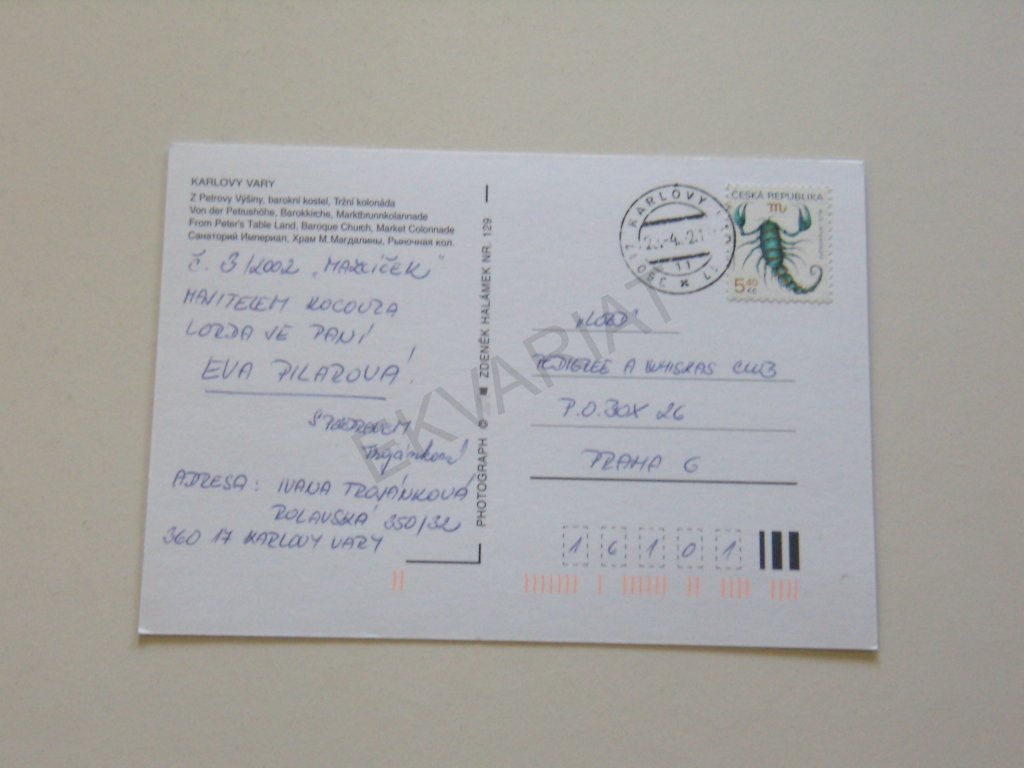 KARLOVY VARY
Z Petrovy Výšiny, barokní kostel, Tržní kolonáda
Von der Petrushöhe, Barokkirche, Marktbrunnkolannade
From Peter's Table Land, Baroque Church, Market Colonnade
Санаторий Империал, Храм М.Магдалины, Рыночная кол.
Č. 3/2002 „MAZLÍČEK"
MAJITELEM KOCOURA
LORDA JE PANÍ
EVA PILAROVÁ!
S POZDRAVEM
Trojánková
ADRESA: IVANA TROJÁNKOVÁ
ROLAVSKÁ 350/32
360 17 KARLOVY VARY
PHOTOGRAPH © ZDENĚK HALÁMEK NR. 129
360 17 KARLOVY VARY 17
ČESKÁ REPUBLIKA
5,40 Kč
„LORD"
PEDIGREE A WHISKAS CLUB
P.O.BOX 26
PRAHA 6
16101
EKVARIAT